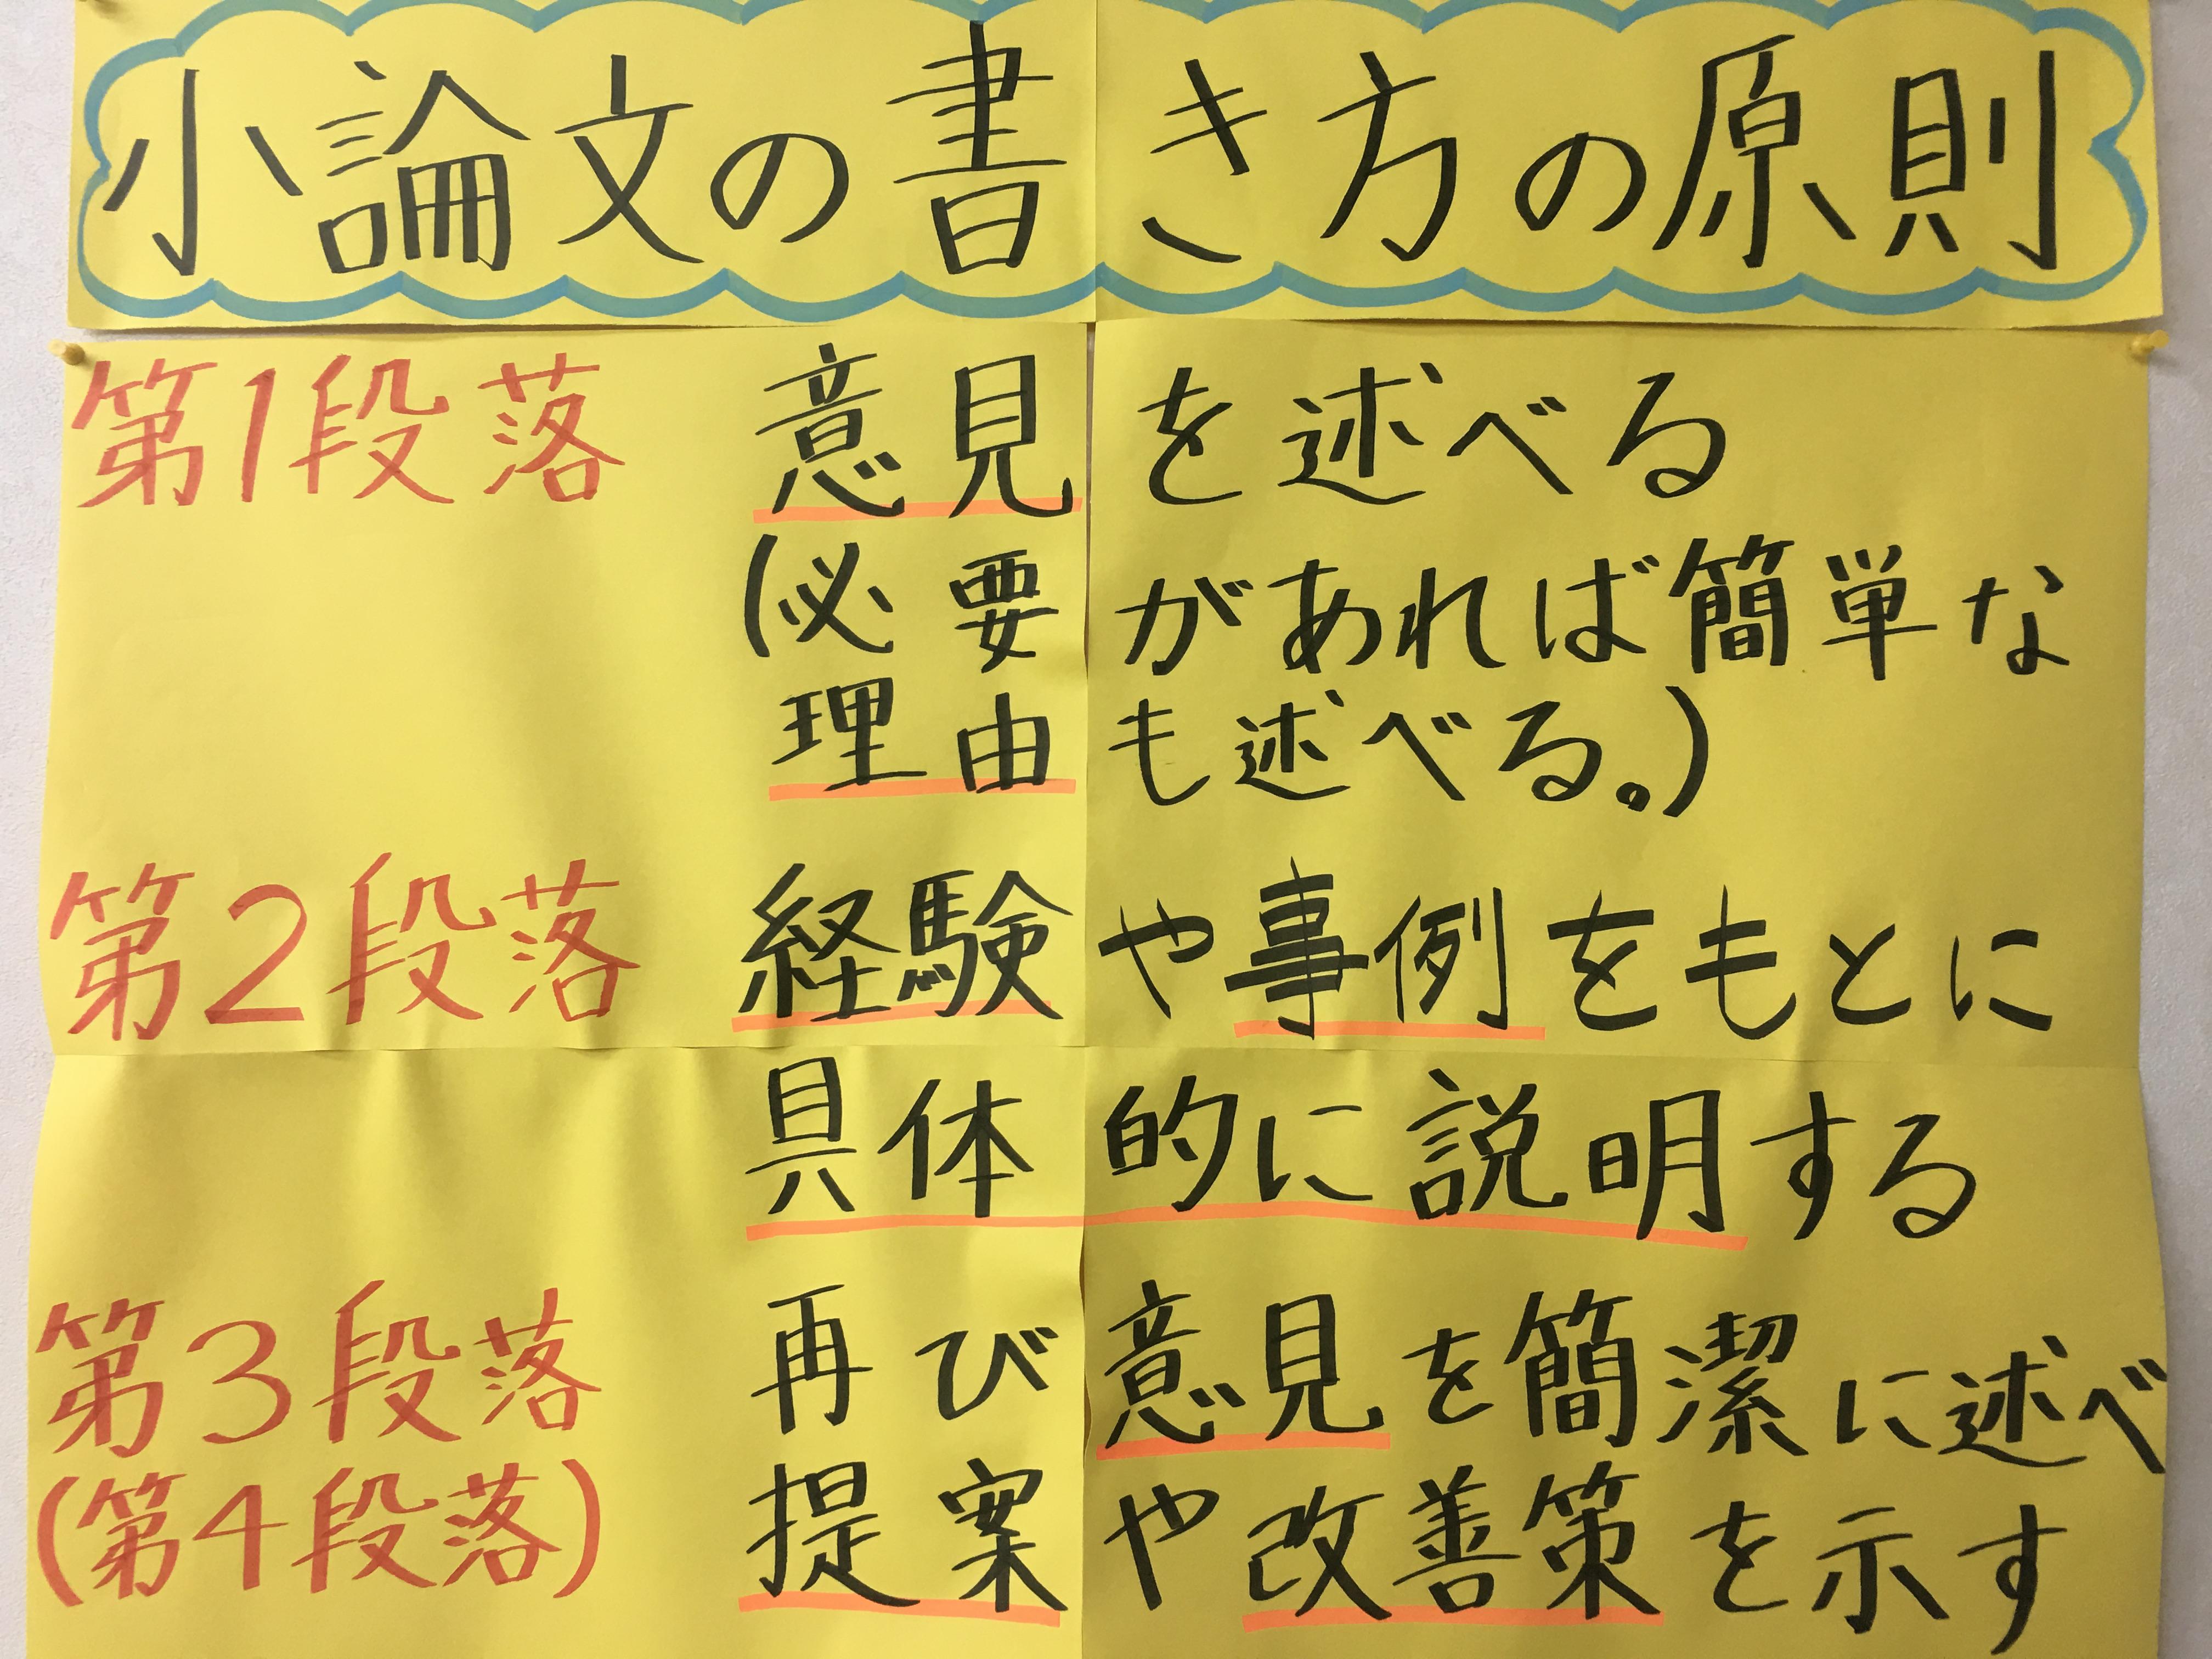 小論文の書き方の原則
第1段落 意見を述べる
(必要があれば簡単な
理由も述べる。)
第2段落 経験や事例をもとに
具体的に説明する
第3段落 再び意見を簡潔に述べ
(第4段落) 提案や改善策を示す